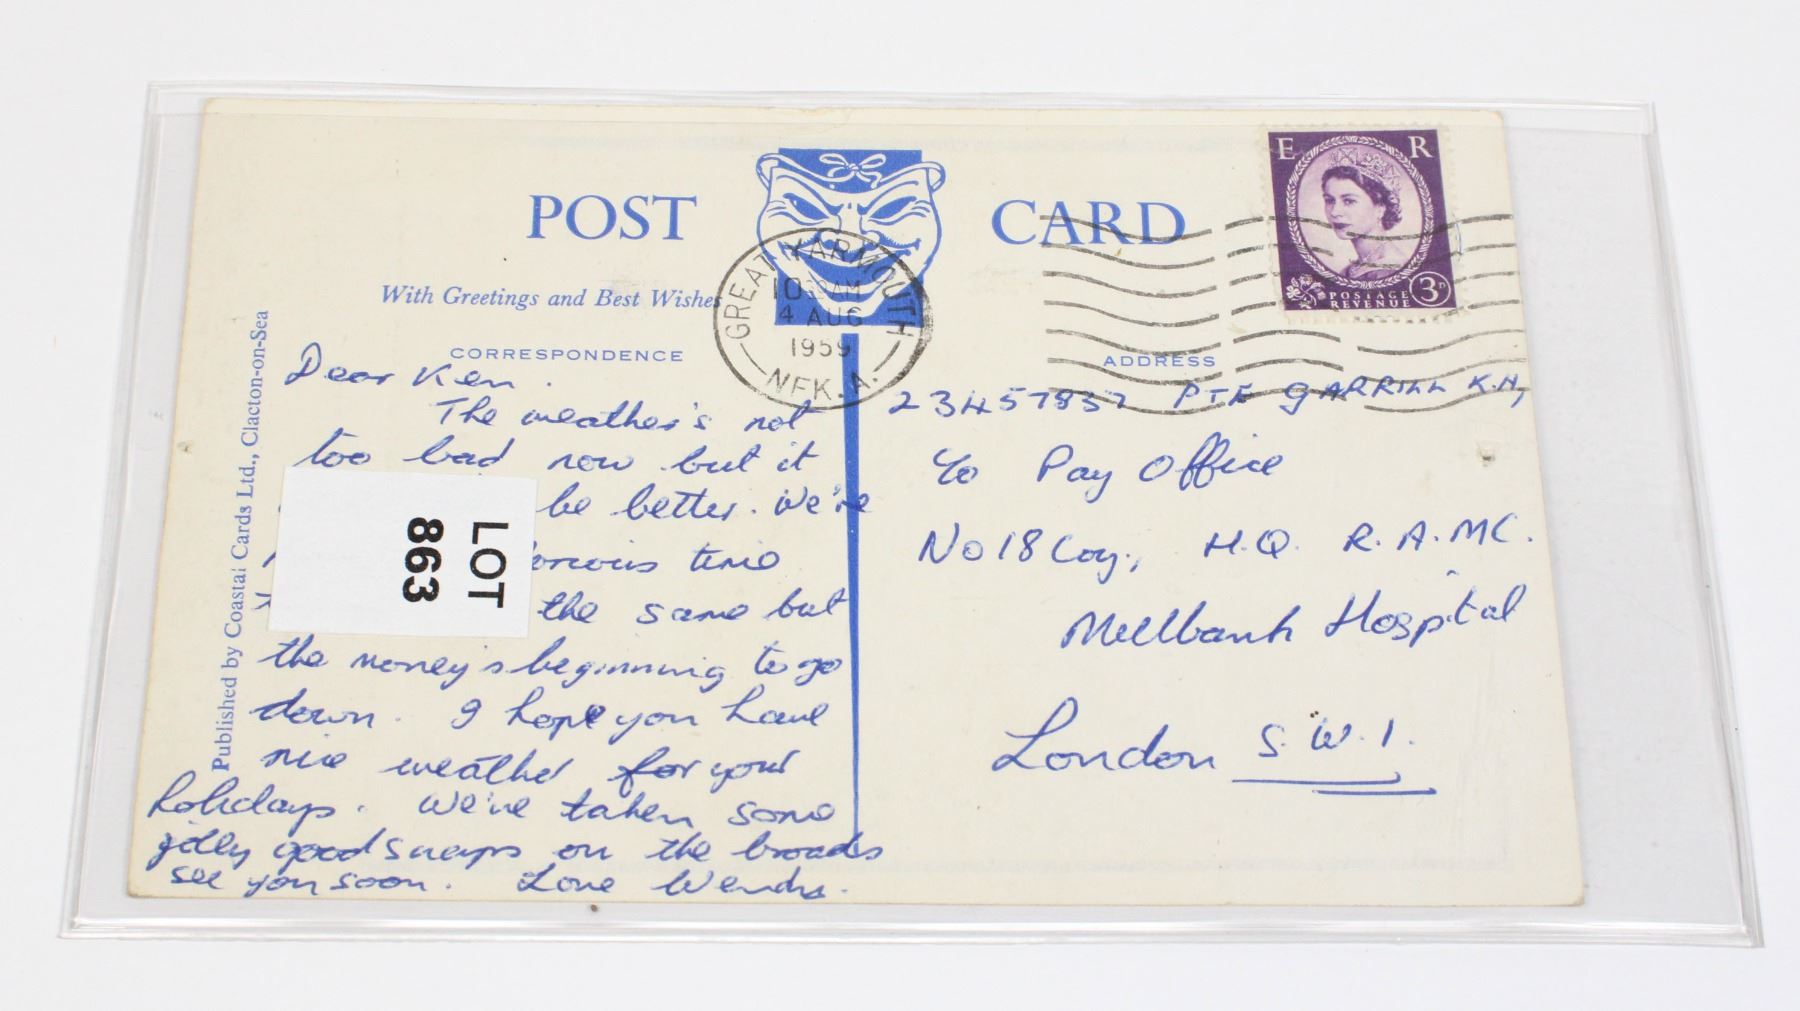 POST CARD
E R
POSTAGE REVENUE 3D
With Greetings and Best Wishes
GREAT YARMOUTH
10 AM
4 AUG
1959
NFK. A.
CORRESPONDENCE
ADDRESS
Published by Coastal Cards Ltd., Clacton-on-Sea
Dear Ken.
The weather's not
too bad now but it
be better. We're
time
the same but
the money's beginning to go
down. I hope you have
nice weather for your
holidays. We've taken some
jolly good snaps on the broads
see you soon. Love Wendy.
LOT
863
23457857 PTE GARRILL K.H,
c/o Pay Office
No 18 Coy., H.Q. R.A.M.C.
Millbank Hospital
London S.W.1.